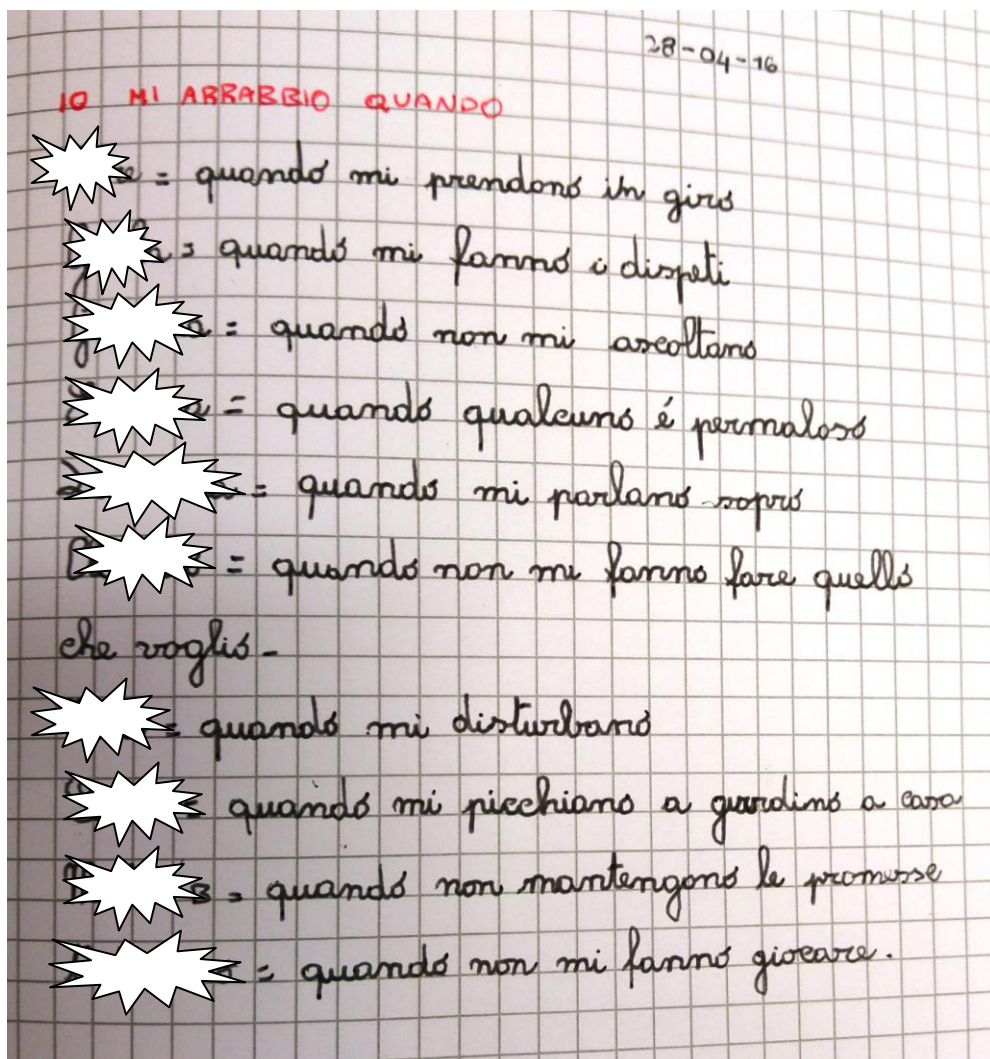 28-04-16
IO MI ARRABBIO QUANDO
= quando mi prendono in giro
= quando mi fanno i dispeti
= quando non mi ascoltano
= quando qualcuno é permaloso
= quando mi parlano sopro
= quando non mi fanno fare quello
che voglio-
= quando mi disturbano
quando mi picchiano a a casa
= quando non mantengono le promesse
= quando non mi fanno giocare.